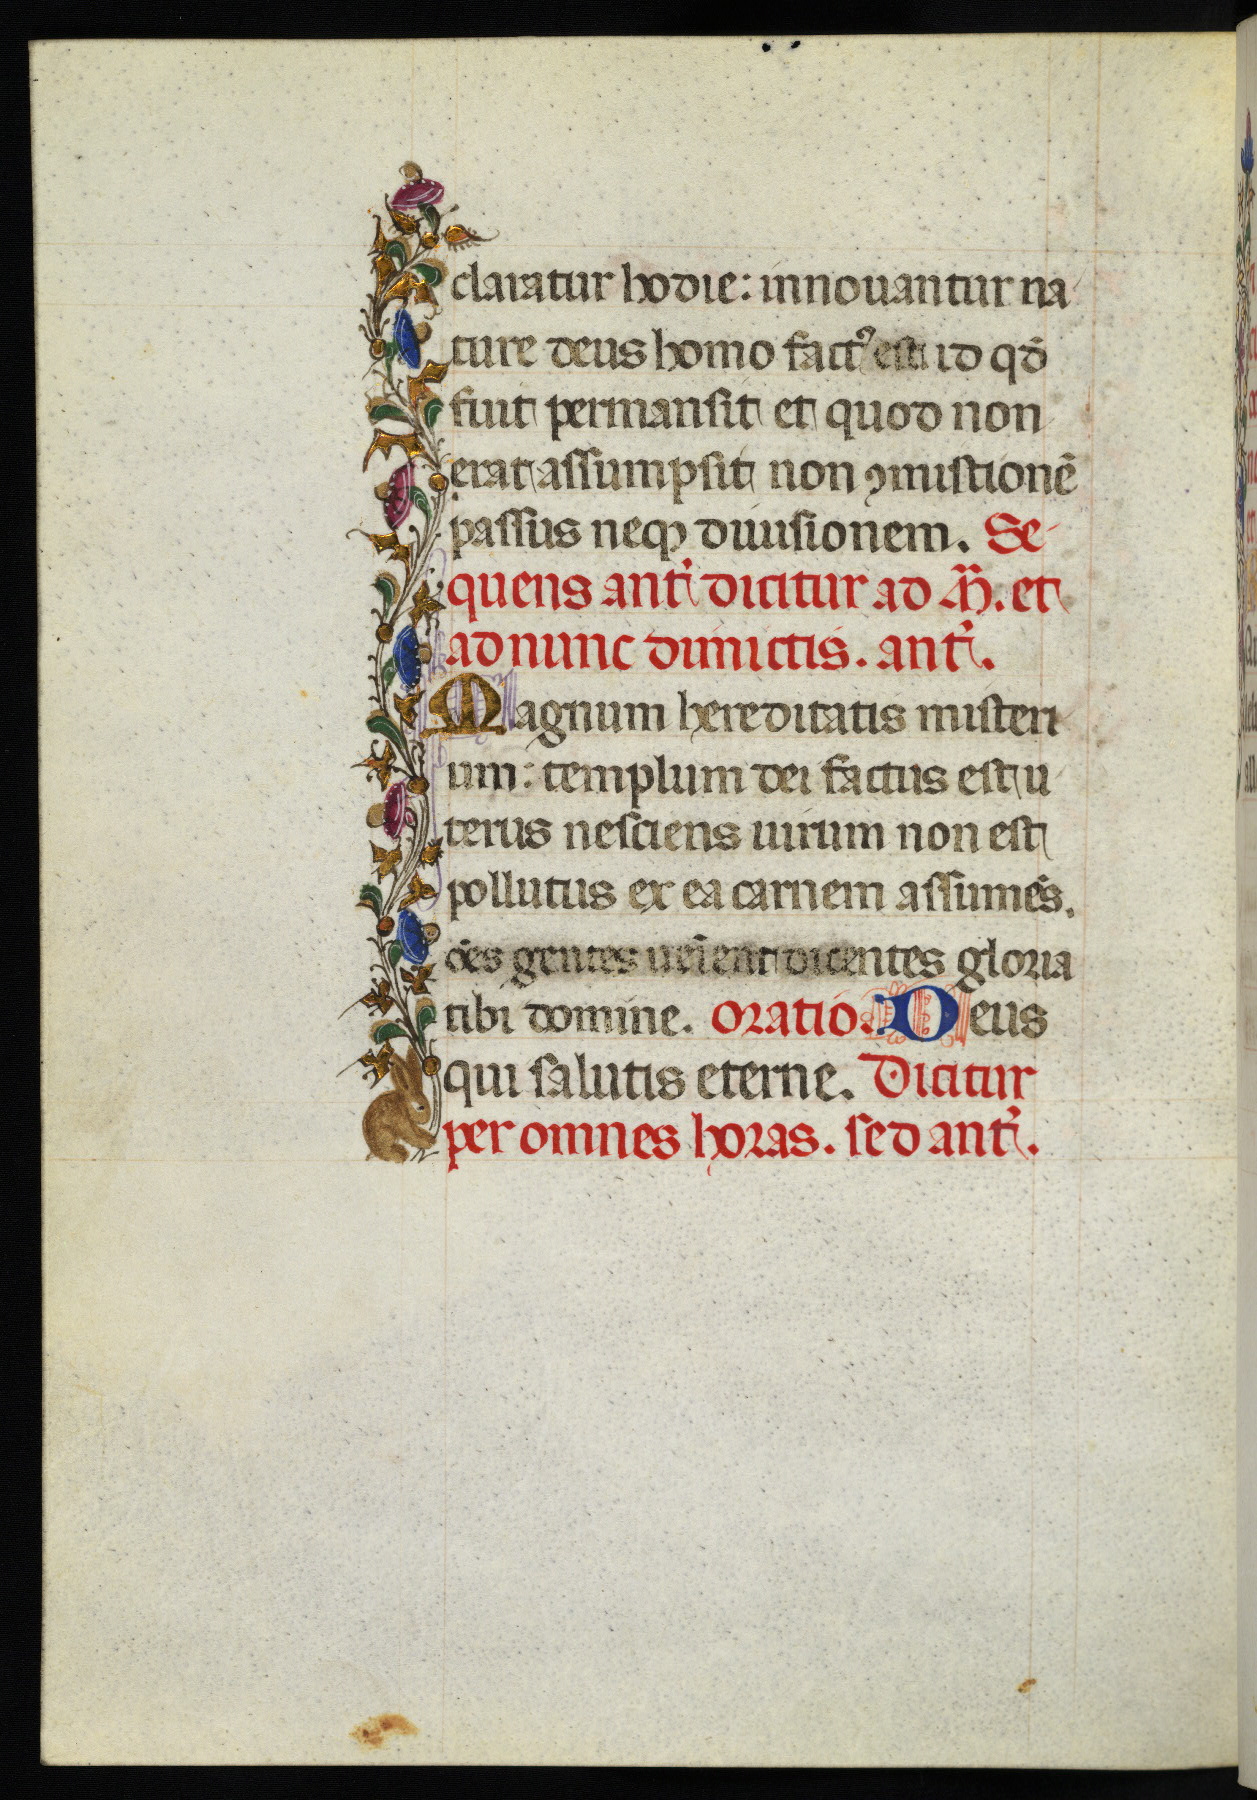 claratur hodie: innouantur na
ture deus homo factꝰ est id qđ
fuit permansit et quod non
erat assumpsit non ꝯmistionē
passus neqꝫ diuisionem. Se
quens antͥ dicitur ad M̄. et
ad nunc dimictis. antͥ.
Magnum hereditatis misteri
um: templum dei factus est u
terus nesciens uirum non est
pollutus ex ea carnem assumēs.
oēs gentes ueīent dicentes gloria
tibi domine. oratio. Deus
qui salutis eterne. Dicitur
per omnes horas. sed antͥ.